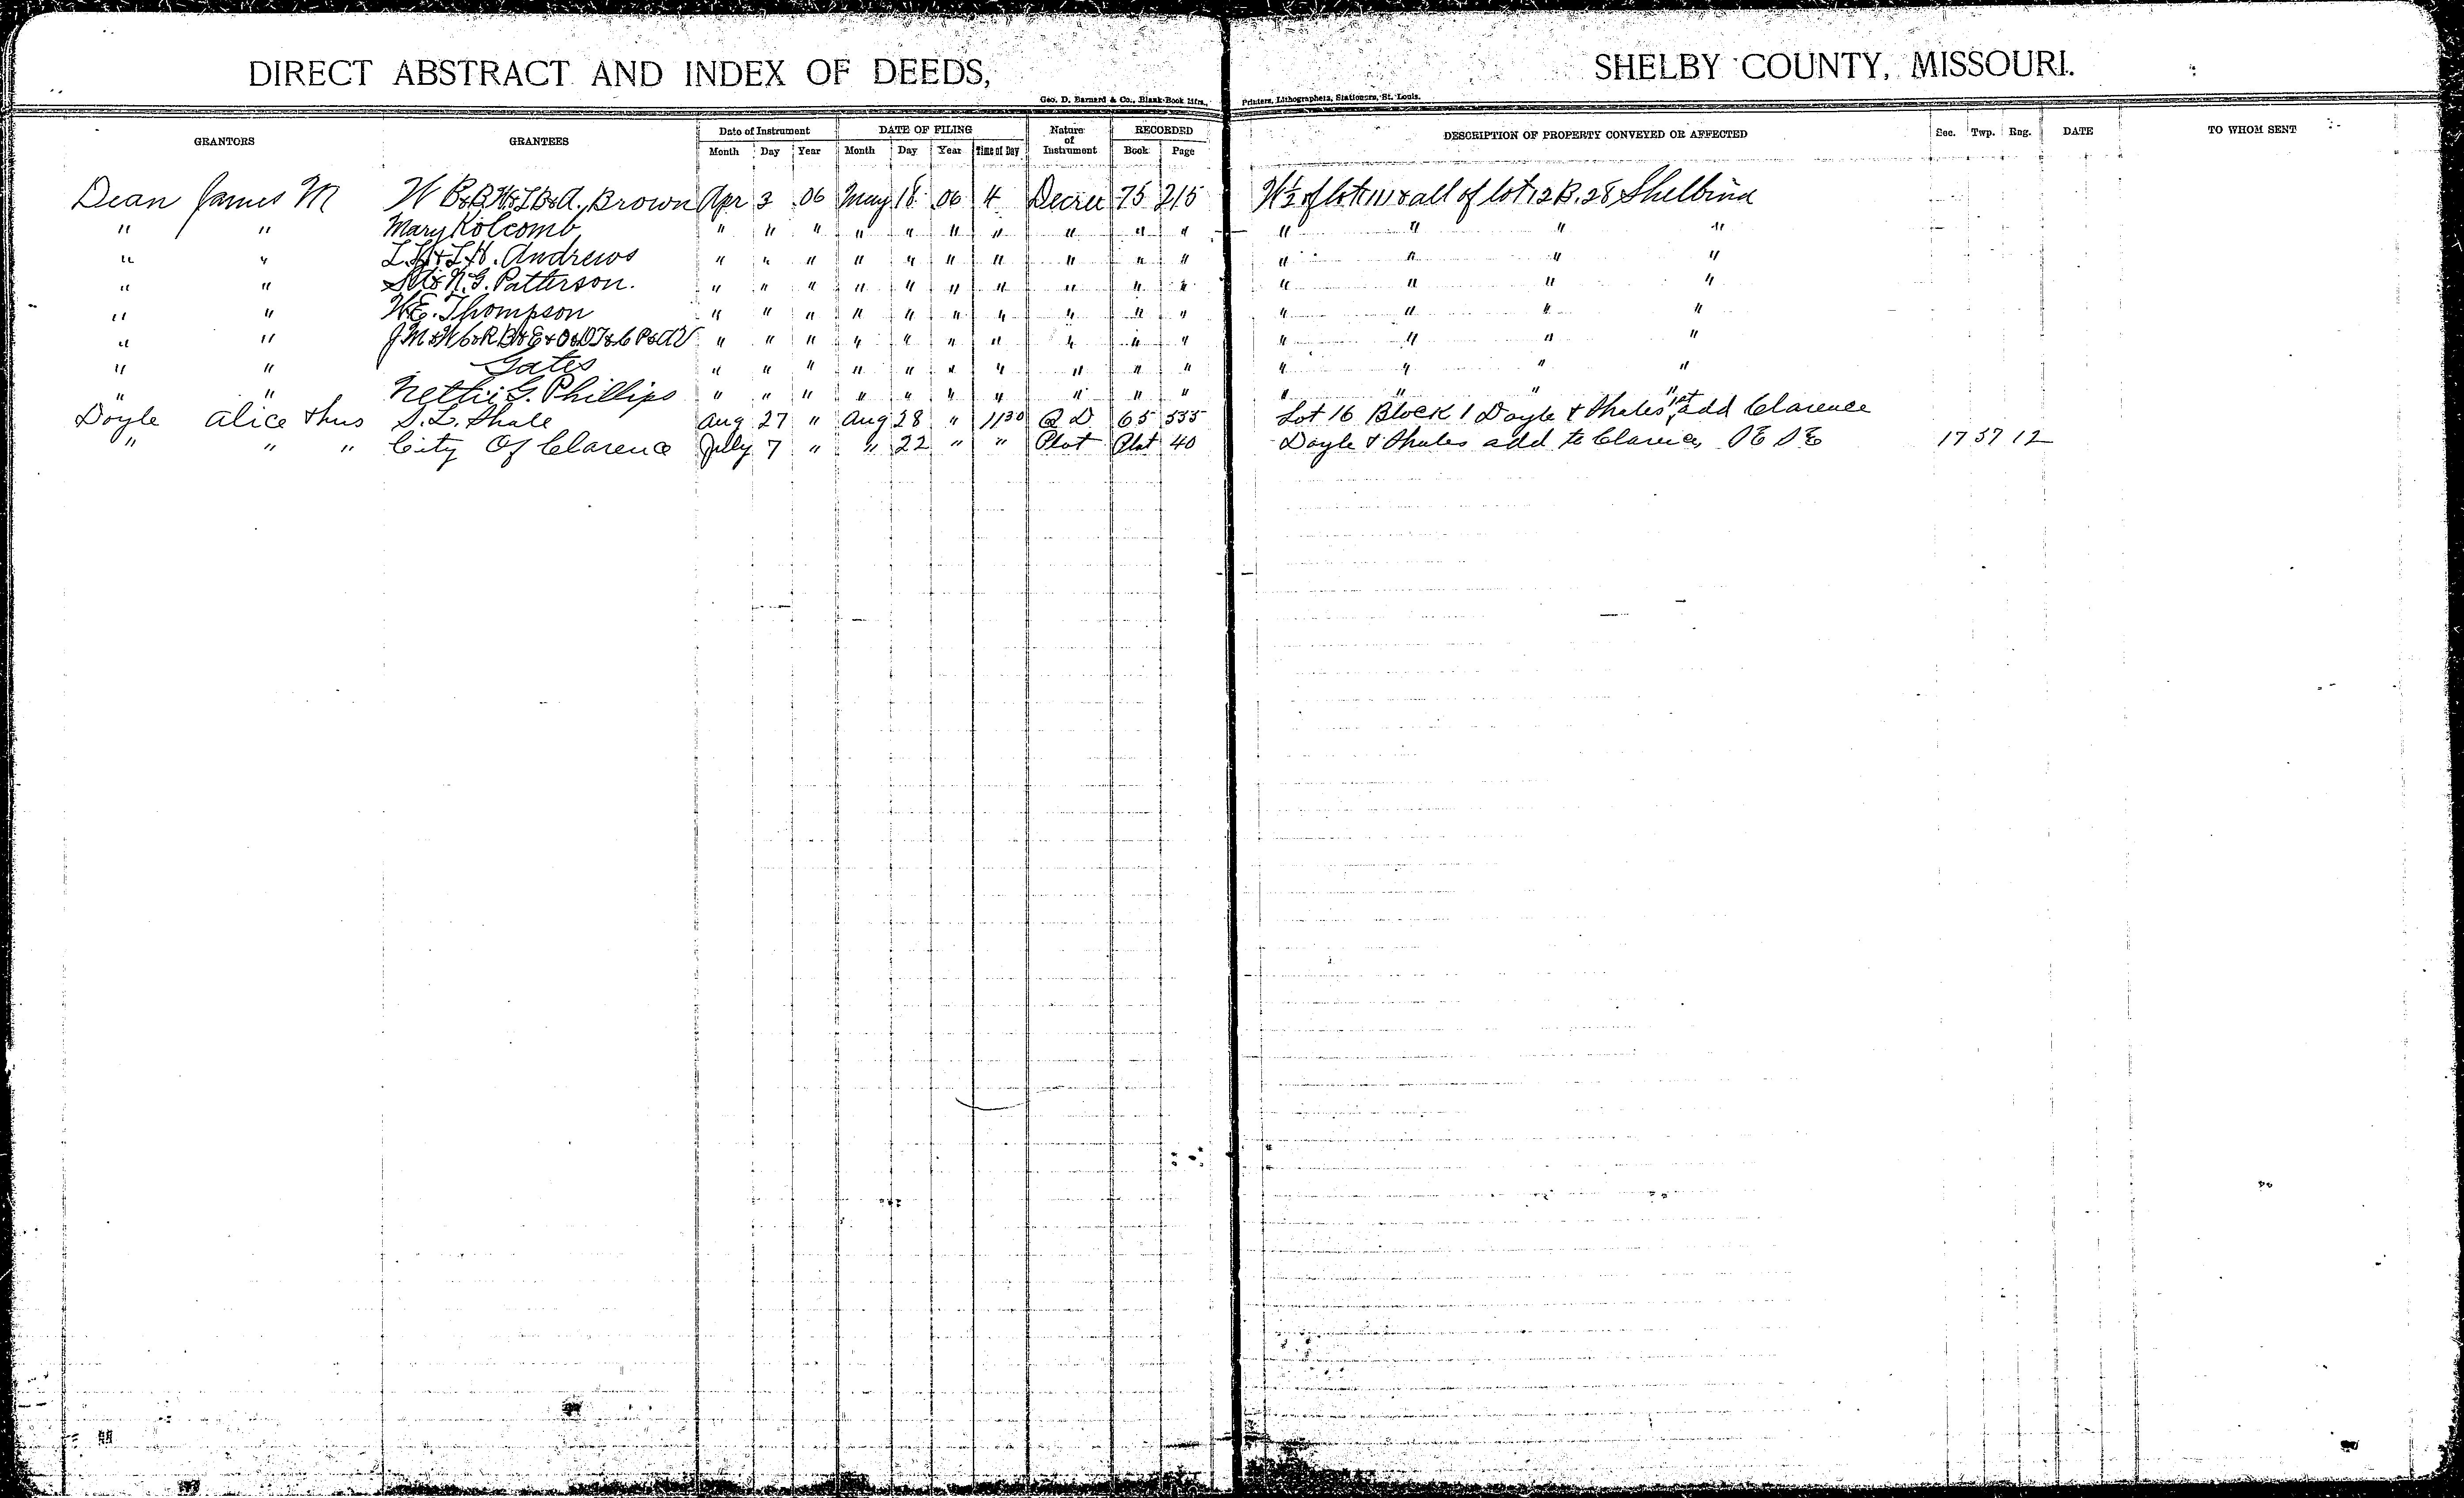 DIRECT ABSTRACT AND INDEX OF DEEDS, SHELBY COUNTY, MISSOURI.
Geo. D. Barnard & Co., Blank-Book Mfrs., Printers, Lithographers, Stationers, St. Louis.
GRANTORS GRANTEES Date of Instrument DATE OF FILING Nature of Instrument RECORDED DESCRIPTION OF PROPERTY CONVEYED OR AFFECTED Sec. Twp. Rng. DATE TO WHOM SENT
Month Day Year Month Day Year Time of Day Book Page
Dean James M W B&B H&L B&A. Brown Apr 3 06 May 18 06 4 Decree 75 215 W ½ of lot 11 & all of lot 12 B. 28 Shelbina
" " Mary Kolcomb " " " " " " " " " " " " " "
" " L. H. Andrews " " " " " " " " " " " " " "
" " N. G. Patterson. " " " " " " " " " " " " " "
" " W. E. Thompson " " " " " " " " " " " " " "
" " J M & W " " " " " " " " " " " " " "
" " Gates " " " " " " " " " " " " " "
" " Nettie G. Phillips " " " " " " " " " " " " " "
Doyle Alice & hus S. L. Shale Aug 27 " Aug 28 " 11 30 Q D 65 535 Lot 16 Block 1 Doyle & Shales 1st add Clarence
" " " City Of Clarence July 7 " " 22 " " Plat Plat 40 Doyle & Shales add to Clarence SE SE 17 57 12